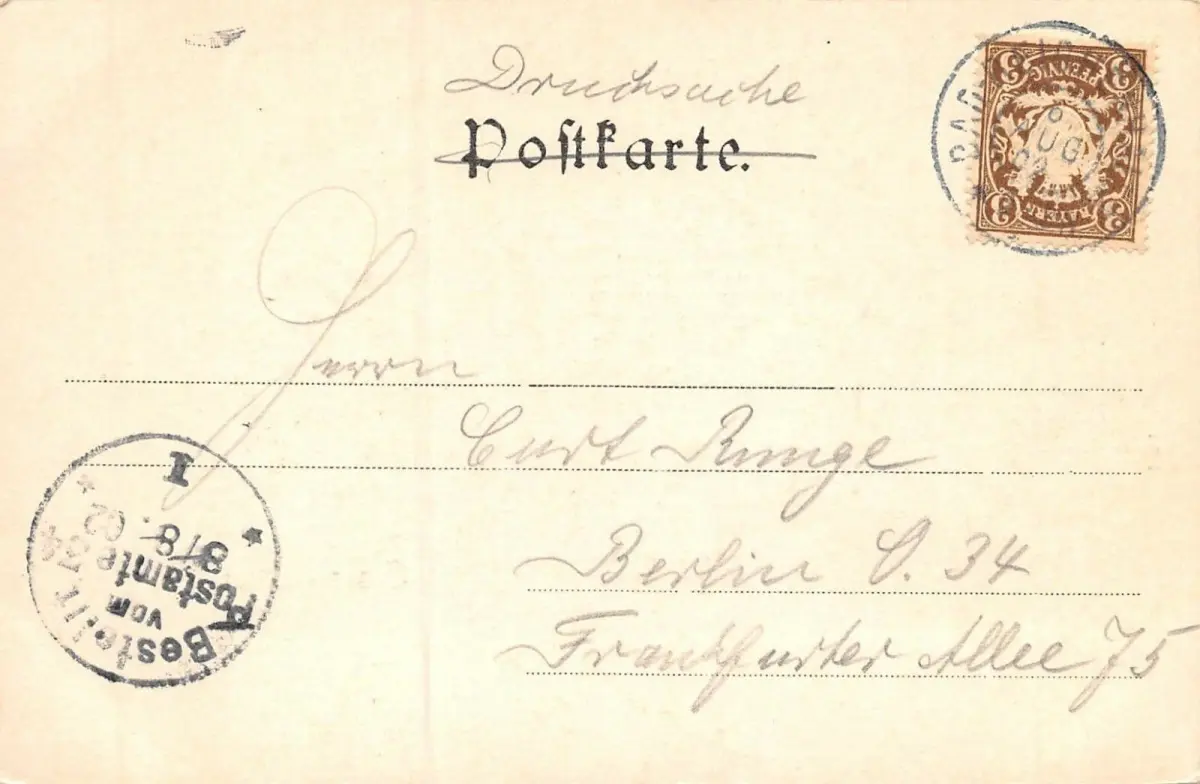 Drucksache
Postkarte.
3 PFENNIG 3
BAYERN
3 3
6 AUG
Herrn
Curt Runge
Berlin O. 34
Frankfurter Allee 75
Bestellt
vom
Postamte
8/8. 02
34
I